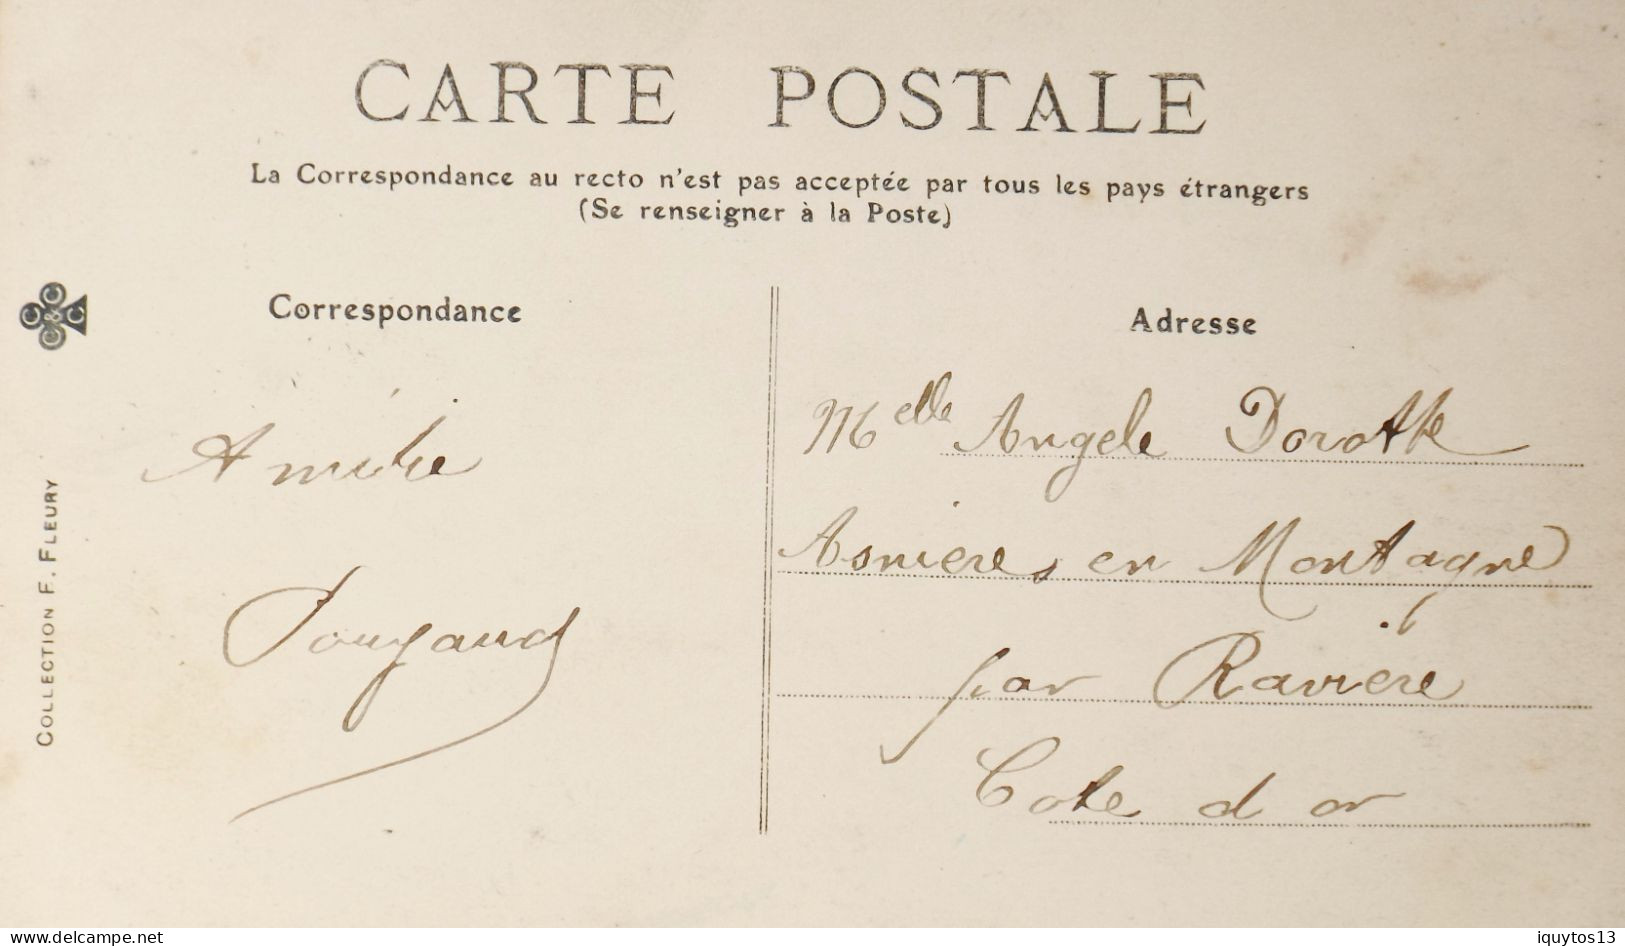 CARTE POSTALE
La Correspondance au recto n'est pas acceptée par tous les pays étrangers
(Se renseigner à la Poste)
Correspondance
Amitié
COLLECTION F. FLEURY
Adresse
Melle Angele
Asnieres en Montagne
par Raviere
Cote d or
delcampe.net
iquytos13